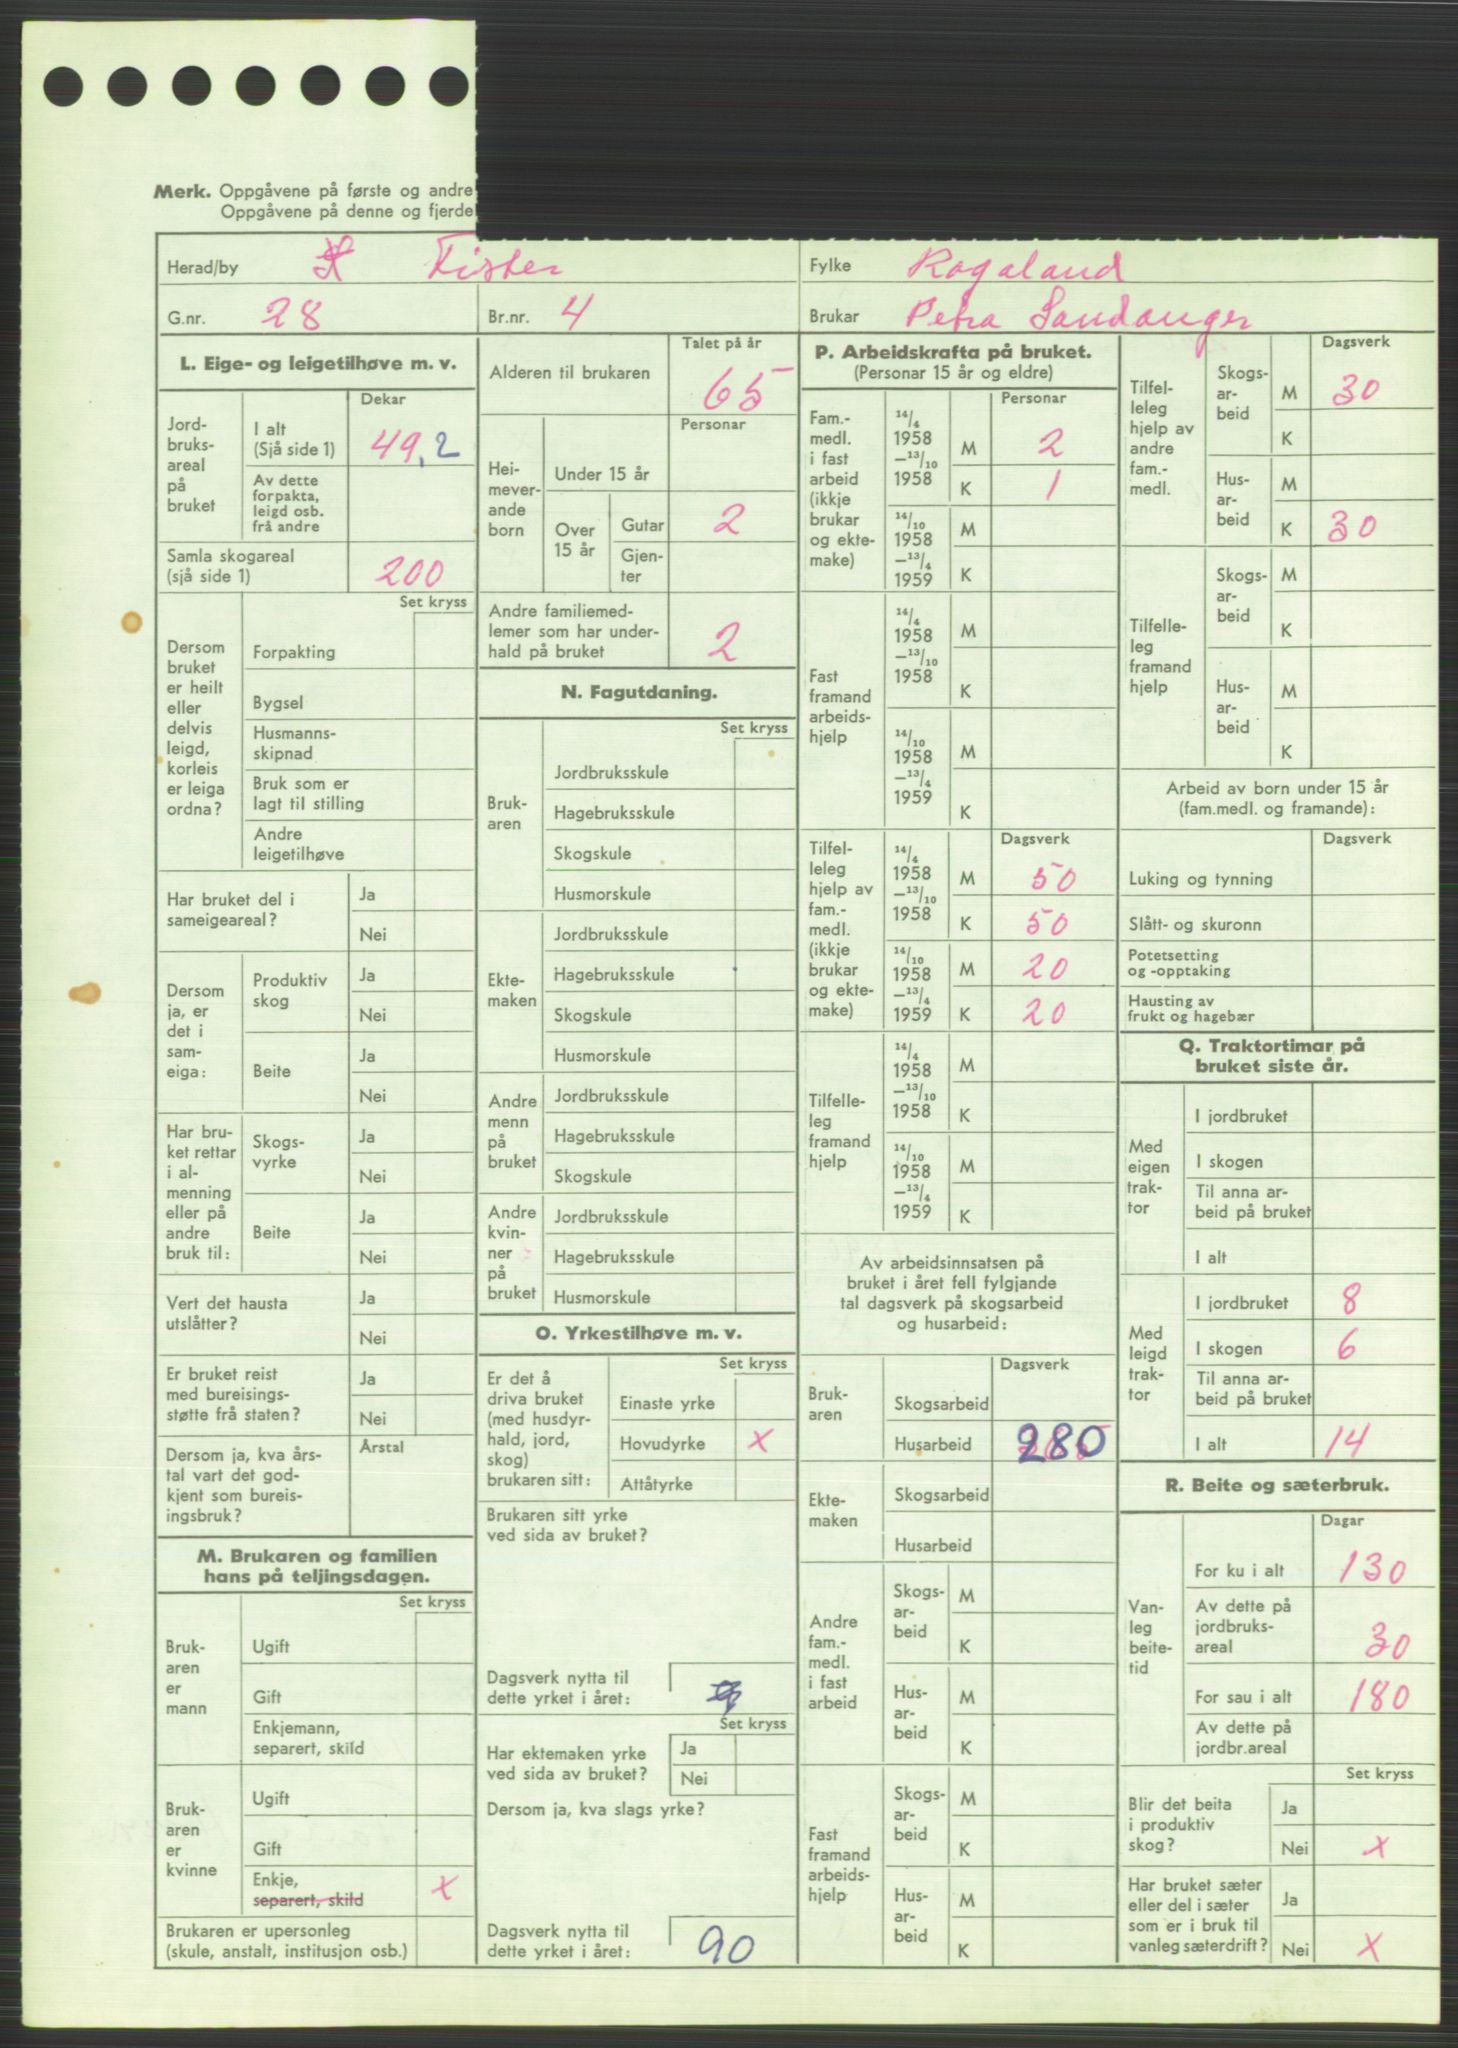 Merk. Oppgåvene på første og andre
Oppgåvene på denne og fjerde
Herad/by Fister
Fylke Rogaland
G.nr. 28
Br.nr. 4
Brukar Petra Sandanger
L. Eige- og leigetilhøve m. v.
Dekar
Jord-
bruks-
areal
på
bruket
I alt
(Sjå side 1) 49,2
Av dette
forpakta,
leigd osb.
frå andre
Samla skogareal
(sjå side 1) 200
Set kryss
Dersom
bruket
er heilt
eller
delvis
leigd,
korleis
er leiga
ordna?
Forpakting
Bygsel
Husmanns-
skipnad
Bruk som er
lagt til stilling
Andre
leigetilhøve
Har bruket del i
sameigeareal?
Ja
Nei
Dersom
ja, er
det i
sam-
eiga:
Produktiv
skog
Ja
Nei
Beite
Ja
Nei
Har bru-
ket rettar
i al-
menning
eller på
andre
bruk til:
Skogs-
vyrke
Ja
Nei
Beite
Ja
Nei
Vert det hausta
utslåtter?
Ja
Nei
Er bruket reist
med bureisings-
støtte frå staten?
Ja
Nei
Dersom ja, kva års-
tal vart det god-
kjent som bureis-
ingsbruk?
Årstal
M. Brukaren og familien
hans på teljingsdagen.
Set kryss
Bruk-
aren
er
mann
Ugift
Gift
Enkjemann,
separert, skild
Bruk-
aren
er
kvinne
Ugift
Gift
Enkje,
separert, skild x
Brukaren er upersonleg
(skule, anstalt, institusjon osb.)
Talet på år
Alderen til brukaren 65
Personar
Hei-
mever-
ande
born
Under 15 år
Over
15 år
Gutar 2
Gjen-
ter
Andre familiemed-
lemer som har under-
hald på bruket 2
N. Fagutdaning.
Set kryss
Bruk-
aren
Jordbruksskule
Hagebruksskule
Skogskule
Husmorskule
Ekte-
maken
Jordbruksskule
Hagebruksskule
Skogskule
Husmorskule
Andre
menn
på
bruket
Jordbruksskule
Hagebruksskule
Skogskule
Andre
kvin-
ner
på
bruket
Jordbruksskule
Hagebruksskule
Husmorskule
O. Yrkestilhøve m. v.
Set kryss
Er det å
driva bruket
(med husdyr-
hald, jord,
skog)
brukaren sitt:
Einaste yrke
Hovudyrke x
Attåtyrke
Brukaren sitt yrke
ved sida av bruket?
Dagsverk nytta til
dette yrket i året:
Set kryss
Har ektemaken yrke
ved sida av bruket?
Ja
Nei
Dersom ja, kva slags yrke?
Dagsverk nytta til
dette yrket i året: 90
P. Arbeidskrafta på bruket.
(Personar 15 år og eldre)
Personar
Fam.-
medl.
i fast
arbeid
(ikkje
brukar
og ekte-
make)
14/4
1958
–13/10
1958
M 2
K 1
14/10
1958
–13/4
1959
M
K
Fast
framand
arbeids-
hjelp
14/4
1958
–13/10
1958
M
K
14/10
1958
–13/4
1959
M
K
Dagsverk
Tilfel-
leleg
hjelp av
fam.-
medl.
(ikkje
brukar
og ekte-
make)
14/4
1958
–13/10
1958
M 50
K 50
14/10
1958
–13/4
1959
M 20
K 20
Tilfelle-
leg
framand
hjelp
14/4
1958
–13/10
1958
M
K
14/10
1958
–13/4
1959
M
K
Av arbeidsinnsatsen på
bruket i året fell fylgjande
tal dagsverk på skogsarbeid
og husarbeid:
Dagsverk
Bruk-
aren
Skogsarbeid
Husarbeid 280
Ekte-
maken
Skogsarbeid
Husarbeid
Andre
fam.-
medl.
i fast
arbeid
Skogs-
ar-
beid
M
K
Hus-
ar-
beid
M
K
Fast
framand
arbeids-
hjelp
Skogs-
ar-
beid
M
K
Hus-
ar-
beid
M
K
Dagsverk
Tilfel-
leleg
hjelp av
andre
fam.-
medl.
Skogs-
ar-
beid
M 30
K
Hus-
ar-
beid
M
K 30
Tilfelle-
leg
framand
hjelp
Skogs-
ar-
beid
M
K
Hus-
ar-
beid
M
K
Arbeid av born under 15 år
(fam.medl. og framande):
Dagsverk
Luking og tynning
Slått- og skuronn
Potetsetting
og -opptaking
Hausting av
frukt og hagebær
Q. Traktortimar på
bruket siste år.
Med
eigen
trak-
tor
I jordbruket
I skogen
Til anna ar-
beid på bruket
I alt
Med
leigd
trak-
tor
I jordbruket 8
I skogen 6
Til anna ar-
beid på bruket
I alt 14
R. Beite og sæterbruk.
Dagar
Van-
leg
beite-
tid
For ku i alt 130
Av dette på
jordbruks-
areal 30
For sau i alt 180
Av dette på
jordbr.areal
Set kryss
Blir det beita
i produktiv
skog?
Ja
Nei x
Har bruket sæter
eller del i sæter
som er i bruk til
vanleg sæterdrift?
Ja
Nei x